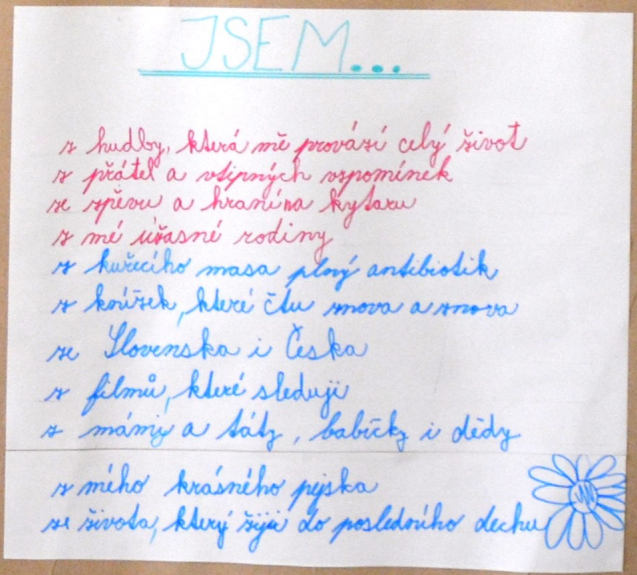 JSEM...
z hudby, která mě provází celý život
z přátel a vtipných vzpomínek
ze zpěvu a hraní na kytaru
z mé úžasné rodiny
z kuřecího masa plný antibiotik
z knížek, které čtu znova a znova
ze Slovenska i Česka
z filmů, které sleduji
z mámy a táty, babičky i dědy
z mého krásného pejska
ze života, který žiji do posledního dechu